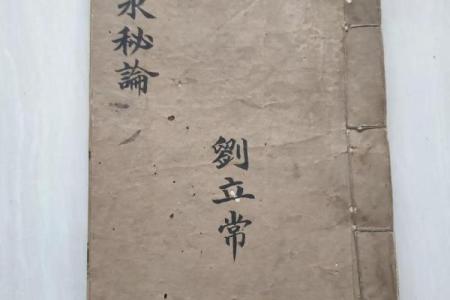 永秘論
劉立常